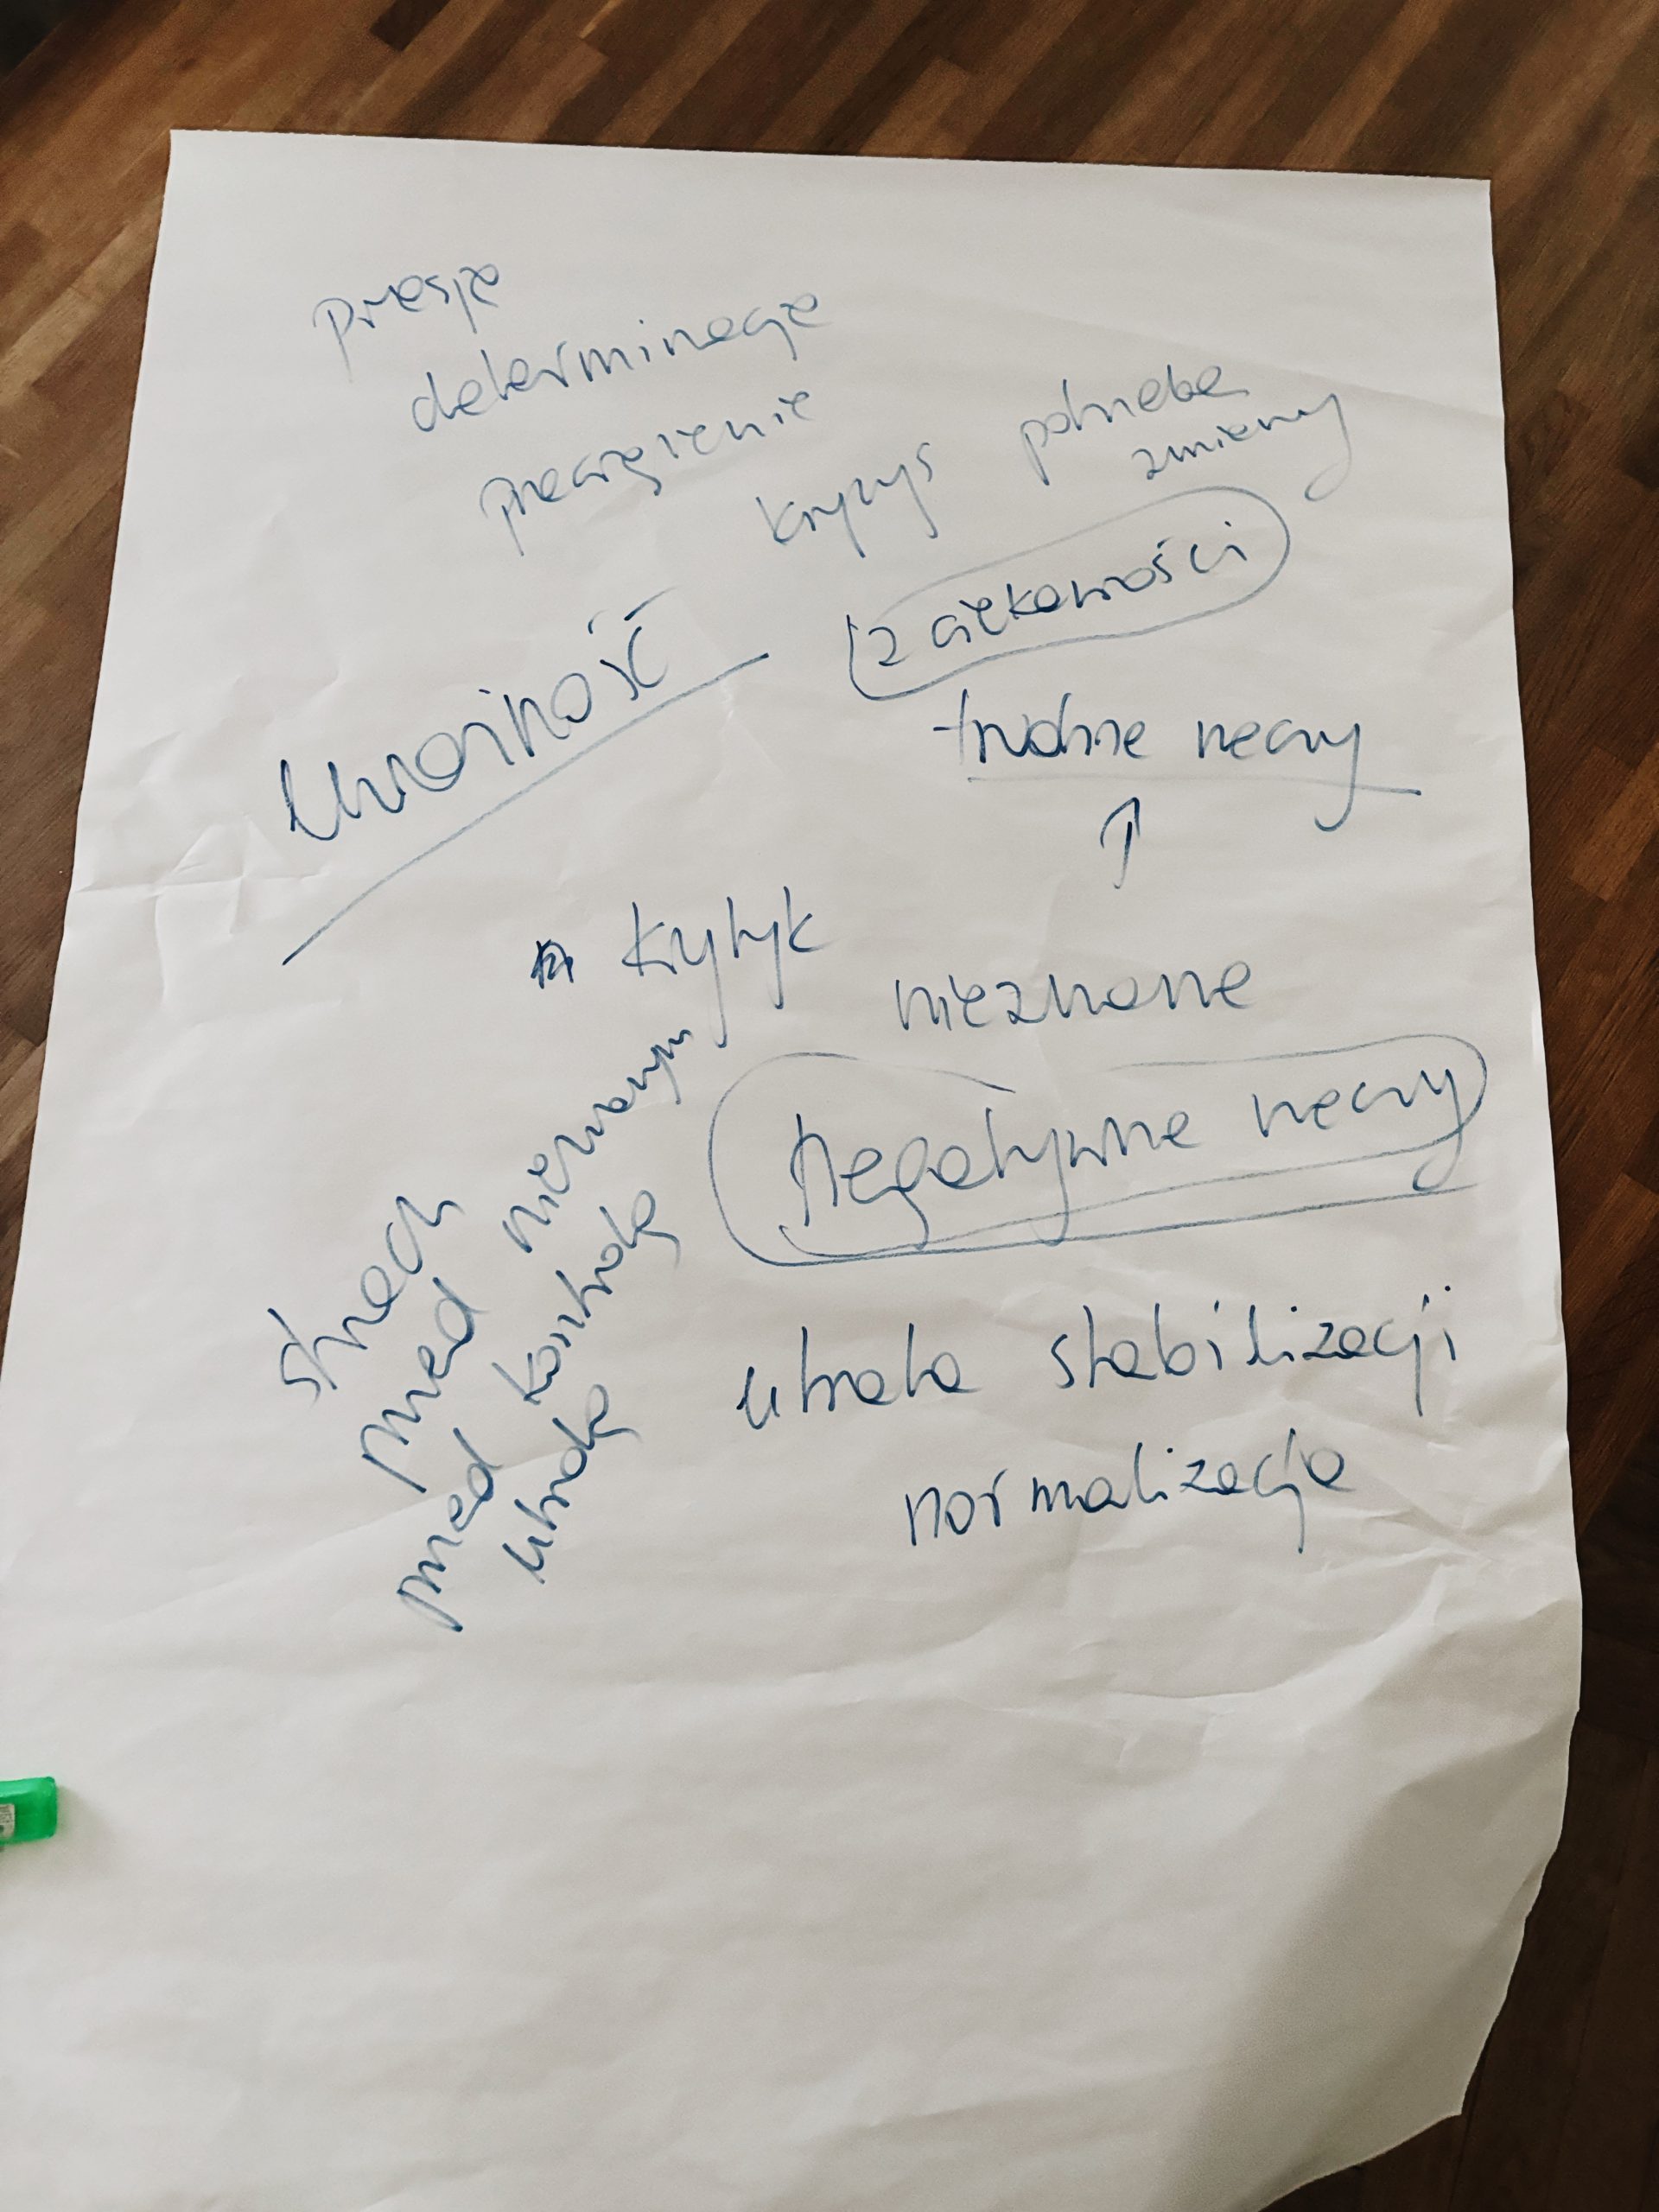 presja
determinacja
przeciążenie
kryzys potrzeba
zmiany
z ciekawości
uważność
trudne rzeczy
↑
krytyk
nieznane
negatywne rzeczy
strach
przed nieznanym
przed utratą
kontrolą
utrata stabilizacji
normalizacja